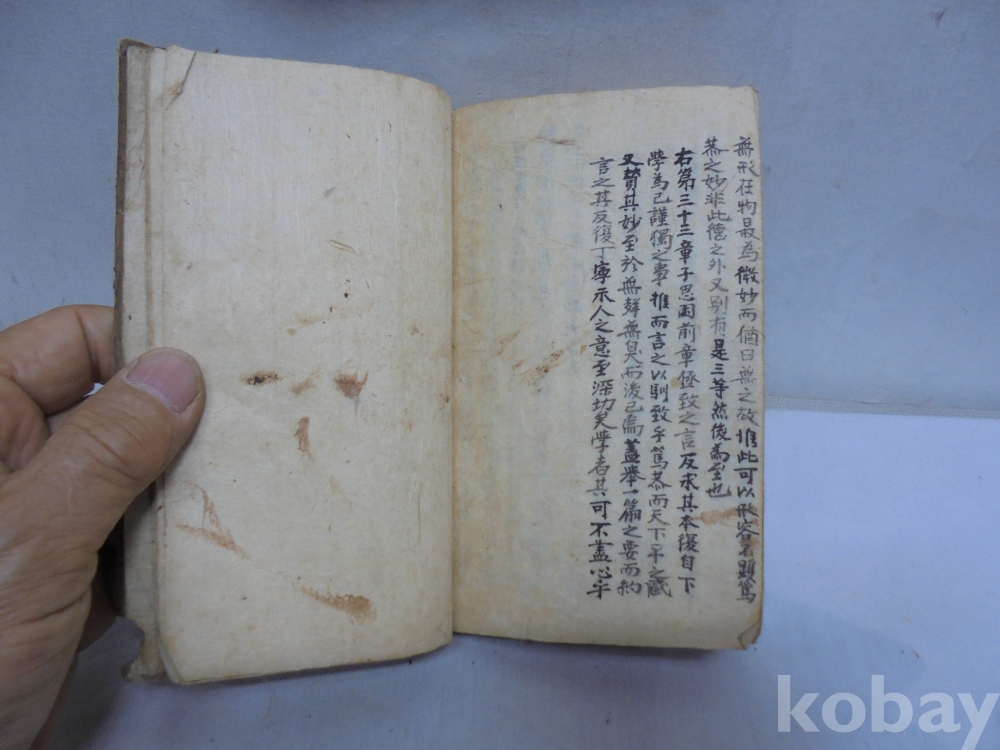 無形在物最爲微妙而猶曰無之故惟此可以形容不顯篤
恭之妙非此德之外又別有是三等然後爲至也
右第三十三章子思因前章極致之言反求其本復自下
學爲己謹獨之事推而言之以馴致乎篤恭而天下平之盛
又贊其妙至於無聲無臭而後已焉蓋擧一篇之要而約
言之其反復丁寧示人之意至深切矣學者其可不盡心乎
kobay